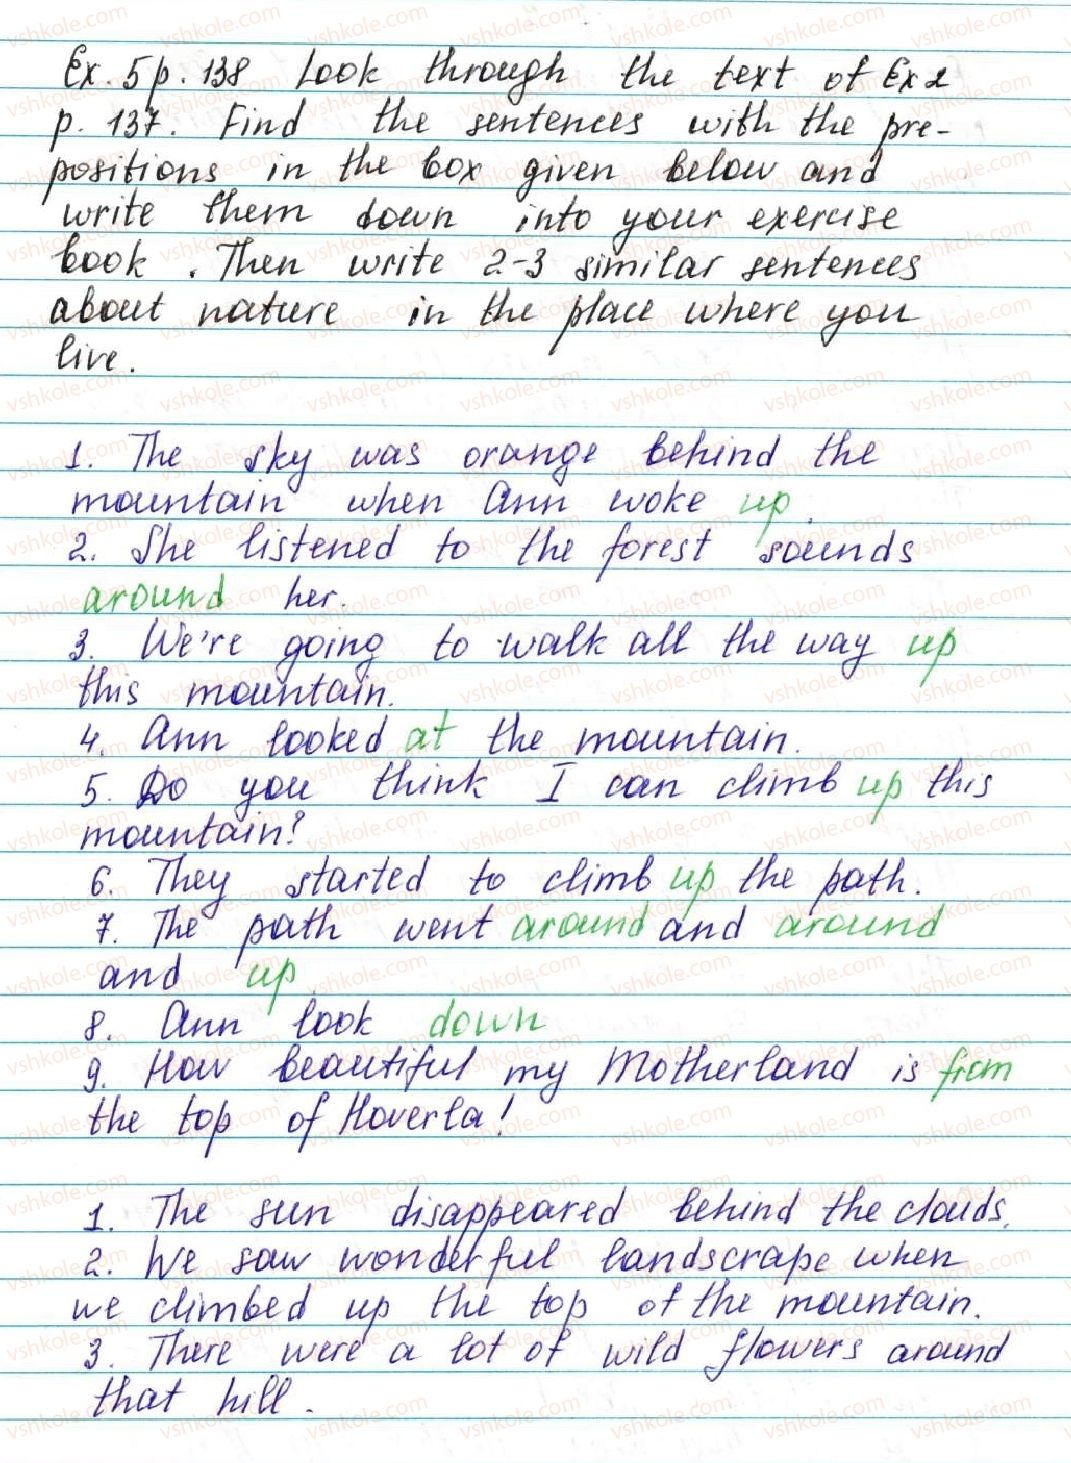 Ex. 5 p. 138 Look through the text of Ex 2
p. 137. Find the sentences with the pre-
positions in the box given below and
write them down into your exercise
book. Then write 2-3 similar sentences
about nature in the place where you
live.
1. The sky was orange behind the
mountain when Ann woke up.
2. She listened to the forest sounds
around her.
3. We're going to walk all the way up
this mountain.
4. Ann looked at the mountain.
5. Do you think I can climb up this
mountain?
6. They started to climb up the path.
7. The path went around and around
and up
8. Ann look down
9. How beautiful my Motherland is from
the top of Hoverla!
1. The sun disappeared behind the clouds.
2. We saw wonderful landscrape when
we climbed up the top of the mountain.
3. There were a lot of wild flowers around
that hill.
vshkole.com